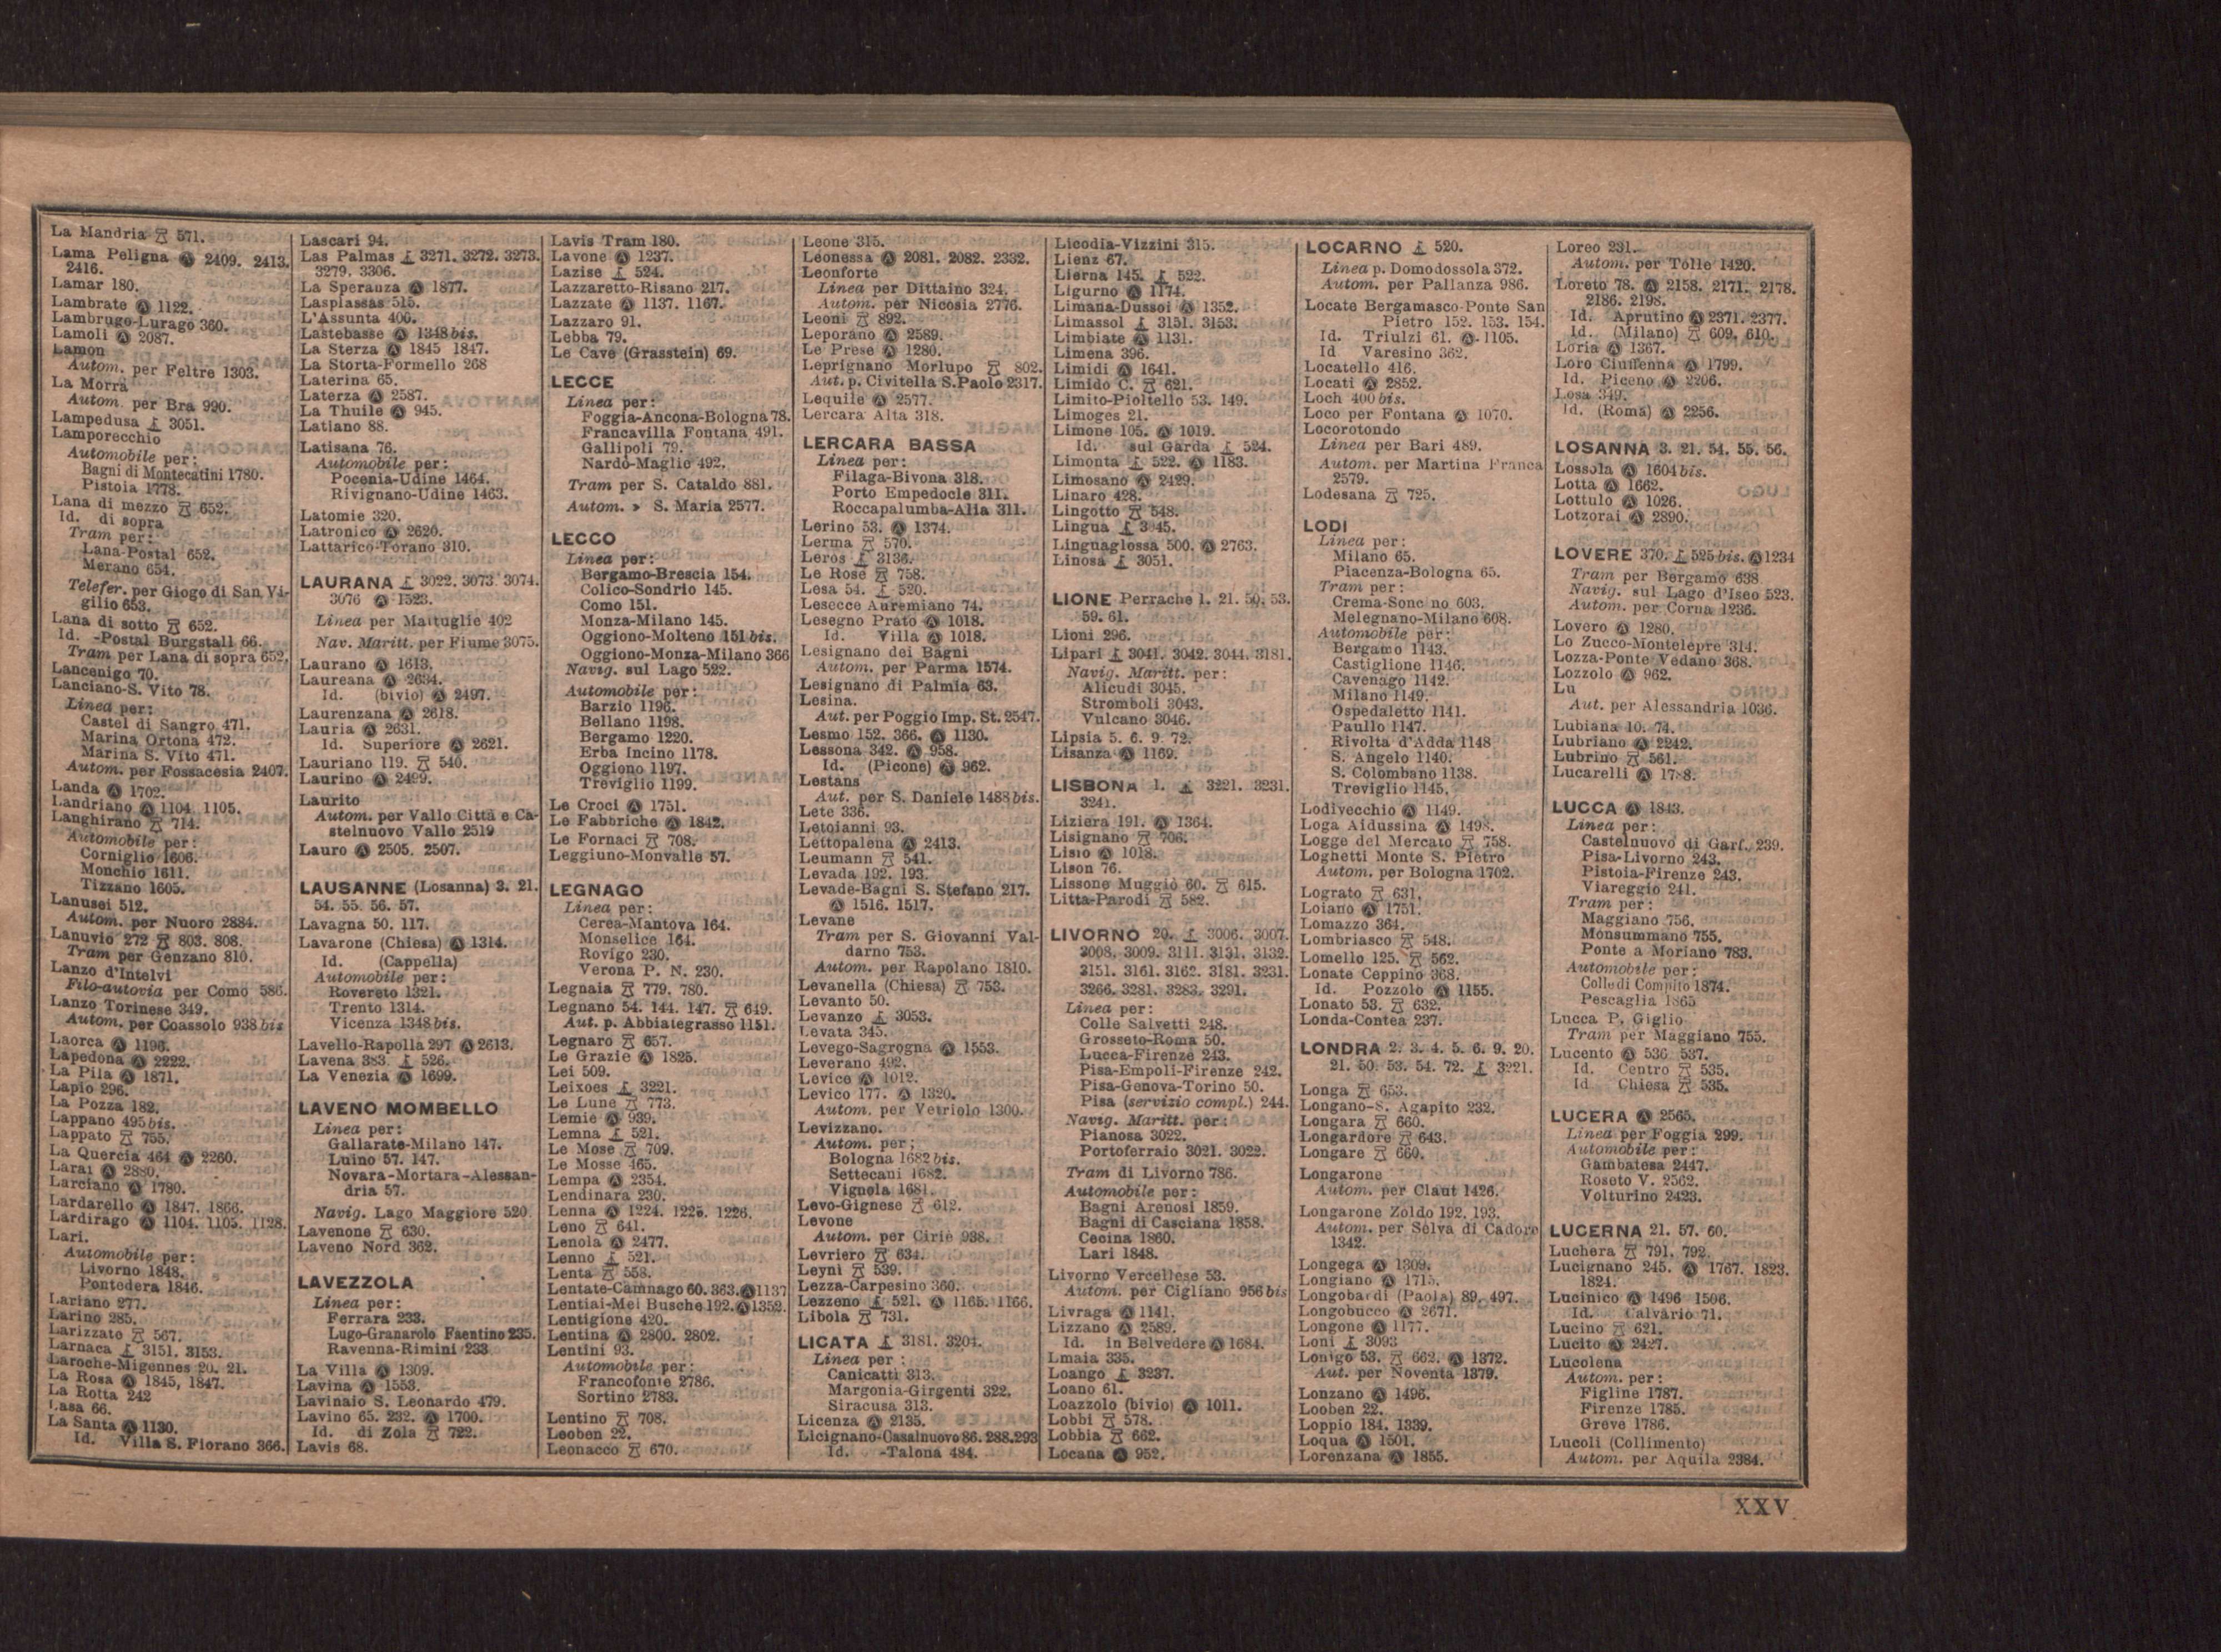 La Mandria 571.
Lama Peligna Ⓐ 2409. 2413.
2416.
Lamar 180.
Lambrate Ⓐ 1122.
Lambrugo-Lurago 360.
Lamoli Ⓐ 2087.
Lamon
Autom. per Feltre 1303.
La Morra
Autom. per Bra 990.
Lampedusa 3051.
Lamporecchio
Automobile per:
Bagni di Montecatini 1780.
Pistoia 1778.
Lana di mezzo 652.
Id. di sopra
Tram per:
Lana-Postal 652.
Merano 654.
Telefer. per Giogo di San Vi-
gilio 653.
Lana di sotto 652.
Id. -Postal Burgstall 66.
Tram per Lana di sopra 652.
Lancenigo 70.
Lanciano-S. Vito 78.
Linea per:
Castel di Sangro 471.
Marina Ortona 472.
Marina S. Vito 471.
Autom. per Fossacesia 2407.
Landa Ⓐ 1702.
Landriano Ⓐ 1104. 1105.
Langhirano 714.
Automobile per:
Corniglio 1606.
Monchio 1611.
Tizzano 1605.
Lanusei 512.
Autom. per Nuoro 2884.
Lanuvio 272 803. 808.
Tram per Genzano 810.
Lanzo d'Intelvi
Filo-autovia per Como 586.
Lanzo Torinese 349.
Autom. per Coassolo 938 bis
Laorca Ⓐ 1196.
Lapedona Ⓐ 2222.
La Pila Ⓐ 1871.
Lapio 296.
La Pozza 182.
Lappano 495 bis.
Lappato 755.
La Quercia 464 Ⓐ 2260.
Larai Ⓐ 2880.
Larciano Ⓐ 1780.
Lardarello Ⓐ 1847. 1866.
Lardirago Ⓐ 1104. 1105. 1128.
Lari.
Automobile per:
Livorno 1848.
Pontedera 1846.
Lariano 277.
Larino 285.
Larizzate 567.
Larnaca 3151. 3153.
Laroche-Migennes 20. 21.
La Rosa Ⓐ 1845, 1847.
La Rotta 242
Lasa 66.
La Santa Ⓐ 1130.
Id. Villa S. Fiorano 366.
Lascari 94.
Las Palmas 3271. 3272. 3273.
3279. 3306.
La Speranza Ⓐ 1877.
Lasplassas 515.
L'Assunta 400.
Lastebasse Ⓐ 1348 bis.
La Sterza Ⓐ 1845 1847.
La Storta-Formello 268
Laterina 65.
Laterza Ⓐ 2587.
La Thuile Ⓐ 945.
Latiano 88.
Latisana 76.
Automobile per:
Pocenia-Udine 1464.
Rivignano-Udine 1463.
Latomie 320.
Latronico Ⓐ 2620.
Lattarico-Torano 310.
LAURANA 3022. 3073. 3074.
3076 Ⓐ 1523.
Linea per Mattuglie 402
Nav. Maritt. per Fiume 3075.
Laurano Ⓐ 1613.
Laureana Ⓐ 2634.
Id. (bivio) Ⓐ 2497.
Laurenzana Ⓐ 2618.
Lauria Ⓐ 2631.
Id. Superiore Ⓐ 2621.
Lauriano 119. 540.
Laurino Ⓐ 2499.
Laurito
Autom. per Vallo Città e Ca-
stelnuovo Vallo 2519
Lauro Ⓐ 2505. 2507.
LAUSANNE (Losanna) 3. 21.
54. 55. 56. 57.
Lavagna 50. 117.
Lavarone (Chiesa) Ⓐ 1314.
Id. (Cappella)
Automobile per:
Rovereto 1321.
Trento 1314.
Vicenza 1348 bis.
Lavello-Rapolla 297 Ⓐ 2613.
Lavena 383. 526.
La Venezia Ⓐ 1699.
LAVENO MOMBELLO
Linea per:
Gallarate-Milano 147.
Luino 57. 147.
Novara-Mortara-Alessan-
dria 57.
Navig. Lago Maggiore 520.
Lavenone 630.
Laveno Nord 362.
LAVEZZOLA
Linea per:
Ferrara 233.
Lugo-Granarolo Faentino 235.
Ravenna-Rimini 233
La Villa Ⓐ 1309.
Lavina Ⓐ 1553.
Lavinaio S. Leonardo 479.
Lavino 65. 232. Ⓐ 1700.
Id. di Zola 722.
Lavis 68.
Lavis Tram 180.
Lavone Ⓐ 1237.
Lazise 524.
Lazzaretto-Risano 217.
Lazzate Ⓐ 1137. 1167.
Lazzaro 91.
Lebba 79.
Le Cave (Grasstein) 69.
LECCE
Linea per:
Foggia-Ancona-Bologna 78.
Francavilla Fontana 491.
Gallipoli 79.
Nardò-Maglie 492.
Tram per S. Cataldo 881.
Autom. » S. Maria 2577.
LECCO
Linea per:
Bergamo-Brescia 154.
Colico-Sondrio 145.
Como 151.
Monza-Milano 145.
Oggiono-Molteno 151 bis.
Oggiono-Monza-Milano 366
Navig. sul Lago 522.
Automobile per:
Barzio 1196.
Bellano 1198.
Bergamo 1220.
Erba Incino 1178.
Oggiono 1197.
Treviglio 1199.
Le Croci Ⓐ 1751.
Le Fabbriche Ⓐ 1842.
Le Fornaci 708.
Leggiuno-Monvalle 57.
LEGNAGO
Linea per:
Cerea-Mantova 164.
Monselice 164.
Rovigo 230.
Verona P. N. 230.
Legnaia 779. 780.
Legnano 54. 144. 147. 649.
Aut. p. Abbiategrasso 1151.
Legnaro 657.
Le Grazie Ⓐ 1825.
Lei 509.
Leixoes 3221.
Le Lune 773.
Lemie Ⓐ 939.
Lemna 521.
Le Mose 709.
Le Mosse 465.
Lempa Ⓐ 2354.
Lendinara 230.
Lenna Ⓐ 1224. 1225. 1226.
Leno 641.
Lenola Ⓐ 2477.
Lenno 521.
Lenta 558.
Lentate-Camnago 60. 363. Ⓐ 1137
Lentiai-Mel Busche 192. Ⓐ 1352.
Lentigione 420.
Lentina Ⓐ 2800. 2802.
Lentini 93.
Automobile per:
Francofonte 2786.
Sortino 2783.
Lentino 708.
Leoben 22.
Leonacco 670.
Leone 315.
Leonessa Ⓐ 2081. 2082. 2332.
Leonforte
Linea per Dittaino 324.
Autom. per Nicosia 2776.
Leoni 892.
Leporano Ⓐ 2589.
Le Prese Ⓐ 1280.
Leprignano Morlupo 802.
Aut. p. Civitella S. Paolo 2317.
Lequile Ⓐ 2577.
Lercara Alta 318.
LERCARA BASSA
Linea per:
Filaga-Bivona 318.
Porto Empedocle 311.
Roccapalumba-Alia 311.
Lerino 53. Ⓐ 1374.
Lerma 570.
Leros 3136.
Le Rose 758.
Lesa 54. 520.
Lesecce Auremiano 74.
Lesegno Prato Ⓐ 1018.
Id. Villa Ⓐ 1018.
Lesignano dei Bagni
Autom. per Parma 1574.
Lesignano di Palmia 63.
Lesina.
Aut. per Poggio Imp. St. 2547.
Lesmo 152. 366. Ⓐ 1130.
Lessona 342. Ⓐ 958.
Id. (Picone) Ⓐ 962.
Lestans
Aut. per S. Daniele 1488 bis.
Lete 336.
Letoianni 93.
Lettopalena Ⓐ 2413.
Leumann 541.
Levada 192. 193.
Levade-Bagni S. Stefano 217.
Ⓐ 1516. 1517.
Levane
Tram per S. Giovanni Val-
darno 753.
Autom. per Rapolano 1810.
Levanella (Chiesa) 753.
Levanto 50.
Levanzo 3053.
Levata 345.
Levego-Sagrogna Ⓐ 1553.
Leverano 492.
Levice Ⓐ 1012.
Levico 177. Ⓐ 1320.
Autom. per Vetriolo 1300.
Levizzano.
Autom. per:
Bologna 1682 bis.
Settecani 1682.
Vignola 1681.
Levo-Gignese 612.
Levone
Autom. per Ciriè 938.
Levriero 634.
Leyni 539.
Lezza-Carpesino 360.
Lezzeno 521. Ⓐ 1165. 1166.
Libola 731.
LICATA 3181. 3204.
Linea per:
Canicatti 313.
Margonia-Girgenti 322.
Siracusa 313.
Licenza Ⓐ 2135.
Licignano-Casalnuovo 86. 288. 293
Id. -Talona 484.
Licodia-Vizzini 315.
Lienz 67.
Lierna 145. 522.
Ligurno Ⓐ 1174.
Limana-Dussoi Ⓐ 1352.
Limassol 3151. 3153.
Limbiate Ⓐ 1131.
Limena 396.
Limidi Ⓐ 1641.
Limido C. 621.
Limito-Pioltello 53. 149.
Limoges 21.
Limone 105. Ⓐ 1019.
Id. sul Garda 524.
Limonta 522. Ⓐ 1183.
Limosano Ⓐ 2429.
Linaro 428.
Lingotto 548.
Lingua 3045.
Linguaglossa 500. Ⓐ 2763.
Linosa 3051.
LIONE Perrache 1. 21. 50. 53.
59. 61.
Lioni 296.
Lipari 3041. 3042. 3044. 3181.
Navig. Maritt. per:
Alicudi 3045.
Stromboli 3043.
Vulcano 3046.
Lipsia 5. 6. 9. 72.
Lisanza Ⓐ 1169.
LISBONA 1. 3221. 3231.
3241.
Liziera 191. Ⓐ 1364.
Lisignano 706.
Lisio Ⓐ 1018.
Lison 76.
Lissone Muggiò 60. 615.
Litta-Parodi 582.
LIVORNO 20. 3006. 3007.
3008. 3009. 3111. 3131. 3132.
3151. 3161. 3162. 3181. 3231.
3266. 3281. 3283. 3291.
Linea per:
Colle Salvetti 248.
Grosseto-Roma 50.
Lucca-Firenze 243.
Pisa-Empoli-Firenze 242.
Pisa-Genova-Torino 50.
Pisa (servizio compl.) 244.
Navig. Maritt. per:
Pianosa 3022.
Portoferraio 3021. 3022.
Tram di Livorno 786.
Automobile per:
Bagni Arenosi 1859.
Bagni di Casciana 1858.
Cecina 1860.
Lari 1848.
Livorno Vercellese 53.
Autom. per Cigliano 956 bis
Livraga Ⓐ 1141.
Lizzano Ⓐ 2589.
Id. in Belvedere Ⓐ 1684.
Lmaia 335.
Loango 3237.
Loano 61.
Loazzolo (bivio) Ⓐ 1011.
Lobbi 578.
Lobbia 662.
Locana Ⓐ 952.
LOCARNO 520.
Linea p. Domodossola 372.
Autom. per Pallanza 986.
Locate Bergamasco-Ponte San
Pietro 152. 153. 154.
Id. Triulzi 61. Ⓐ 1105.
Id Varesino 362.
Locatello 416.
Locati Ⓐ 2852.
Loch 400 bis.
Loco per Fontana Ⓐ 1070.
Locorotondo
Linea per Bari 489.
Autom. per Martina Franca
2579.
Lodesana 725.
LODI
Linea per:
Milano 65.
Piacenza-Bologna 65.
Tram per:
Crema-Sonc no 603.
Melegnano-Milano 608.
Automobile per:
Bergamo 1143.
Castiglione 1146.
Cavenago 1142.
Milano 1149.
Ospedaletto 1141.
Paullo 1147.
Rivolta d'Adda 1148
S. Angelo 1140.
S. Colombano 1138.
Treviglio 1145.
Lodivecchio Ⓐ 1149.
Loga Aidussina Ⓐ 1498.
Logge del Mercato 758.
Loghetti Monte S. Pietro
Autom. per Bologna 1702.
Lograto 631.
Loiano Ⓐ 1751.
Lomazzo 364.
Lombriasco 548.
Lomello 125. 562.
Lonate Ceppino 368.
Id. Pozzolo Ⓐ 1155.
Lonato 53. 632.
Londa-Contea 237.
LONDRA 2. 3. 4. 5. 6. 9. 20.
21. 50. 53. 54. 72. 3221.
Longa 653.
Longano-S. Agapito 232.
Longara 660.
Longardore 643.
Longare 660.
Longarone
Autom. per Claut 1426.
Longarone Zoldo 192. 193.
Autom. per Selva di Cadore
1342.
Longega Ⓐ 1309.
Longiano Ⓐ 1715.
Longobardi (Paola) 89. 497.
Longobucco Ⓐ 2671.
Longone Ⓐ 1177.
Loni 3093
Lonigo 53. 662. Ⓐ 1372.
Aut. per Noventa 1379.
Lonzano Ⓐ 1496.
Looben 22.
Loppio 184. 1339.
Loqua Ⓐ 1501.
Lorenzana Ⓐ 1855.
Loreo 231.
Autom. per Tolle 1420.
Loreto 78. Ⓐ 2158. 2171. 2178.
2186. 2198.
Id. Aprutino Ⓐ 2371. 2377.
Id. (Milano) 609. 610.
Loria Ⓐ 1367.
Loro Ciuffenna Ⓐ 1799.
Id. Piceno Ⓐ 2206.
Losa 349.
Id. (Roma) Ⓐ 2256.
LOSANNA 3. 21. 54. 55. 56.
Lossola Ⓐ 1604 bis.
Lotta Ⓐ 1662.
Lottulo Ⓐ 1026.
Lotzorai Ⓐ 2890.
LOVERE 370. 525 bis. Ⓐ 1234
Tram per Bergamo 638
Navig. sul Lago d'Iseo 523.
Autom. per Corna 1236.
Lovero Ⓐ 1280.
Lo Zucco-Montelepre 314.
Lozza-Ponte Vedano 368.
Lozzolo Ⓐ 962.
Lu
Aut. per Alessandria 1036.
Lubiana 10. 74.
Lubriano Ⓐ 2242.
Lubrino 561.
Lucarelli Ⓐ
LUCCA Ⓐ 1843.
Linea per:
Castelnuovo di Garf. 239.
Pisa-Livorno 243.
Pistoia-Firenze 243.
Viareggio 241.
Tram per:
Maggiano 756.
Monsummano 755.
Ponte a Moriano 783.
Automobile per:
Colle di Compito 1874.
Pescaglia 1865
Lucca P. Giglio
Tram per Maggiano 755.
Lucento Ⓐ 536 537.
Id. Centro 535.
Id Chiesa 535.
LUCERA Ⓐ 2565.
Linea per Foggia 299.
Automobile per:
Gambatesa 2447.
Roseto V. 2562.
Volturino 2423.
LUCERNA 21. 57. 60.
Luchera 791. 792.
Lucignano 245. Ⓐ 1767. 1823.
1824.
Lucinico Ⓐ 1496 1506.
Id. Calvario 71.
Lucino 621.
Lucito Ⓐ 2427.
Lucolena
Autom. per:
Figline 1787.
Firenze 1785.
Greve 1786.
Lucoli (Collimento)
Autom. per Aquila 2384.
XXV